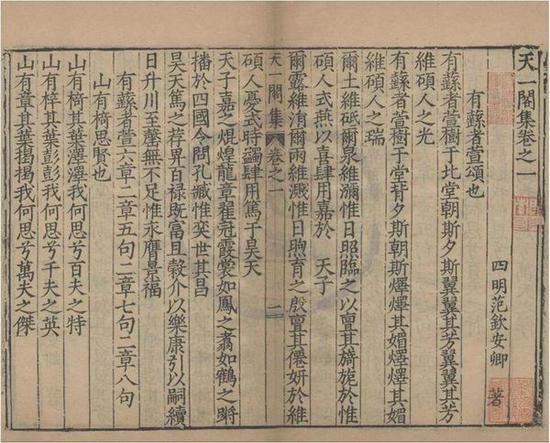 天一閣集卷之一
四明范欽安卿 著
有蘐者萱頌也
有蘐者萱樹于北堂朝斯夕斯翼翼其芳翼翼其芳
維碩人之光
有蘐者萱樹于堂背夕斯朝斯燡燡其媚燡燡其媚
維碩人之瑞
爾土維砥爾泉維瀰惟日照臨之以亶其旖旎於惟
碩人式燕以喜肆用嘉於 天子
爾露維湑爾雨維濊惟日煦育之殷亶其僊妍於維
碩人憂式時蠲肆用篤于昊天
天一閣集 卷之一 二
天子嘉之焜煌龍章翟冠霞裳如鳳之翥如鶴之蹡
播於四國令問孔臧惟奕世其昌
昊天篤之荐畀百禄既富且穀介以樂康引以嗣續
日升川至罄無不足惟永膺景福
有蘐者萱六章二章五句二章七句二章八句
山有椅思賢也
山有椅其葉澤澤我何思兮百夫之特
山有梓其葉彭彭我何思兮千夫之英
山有章其葉揭揭我何思兮萬夫之傑